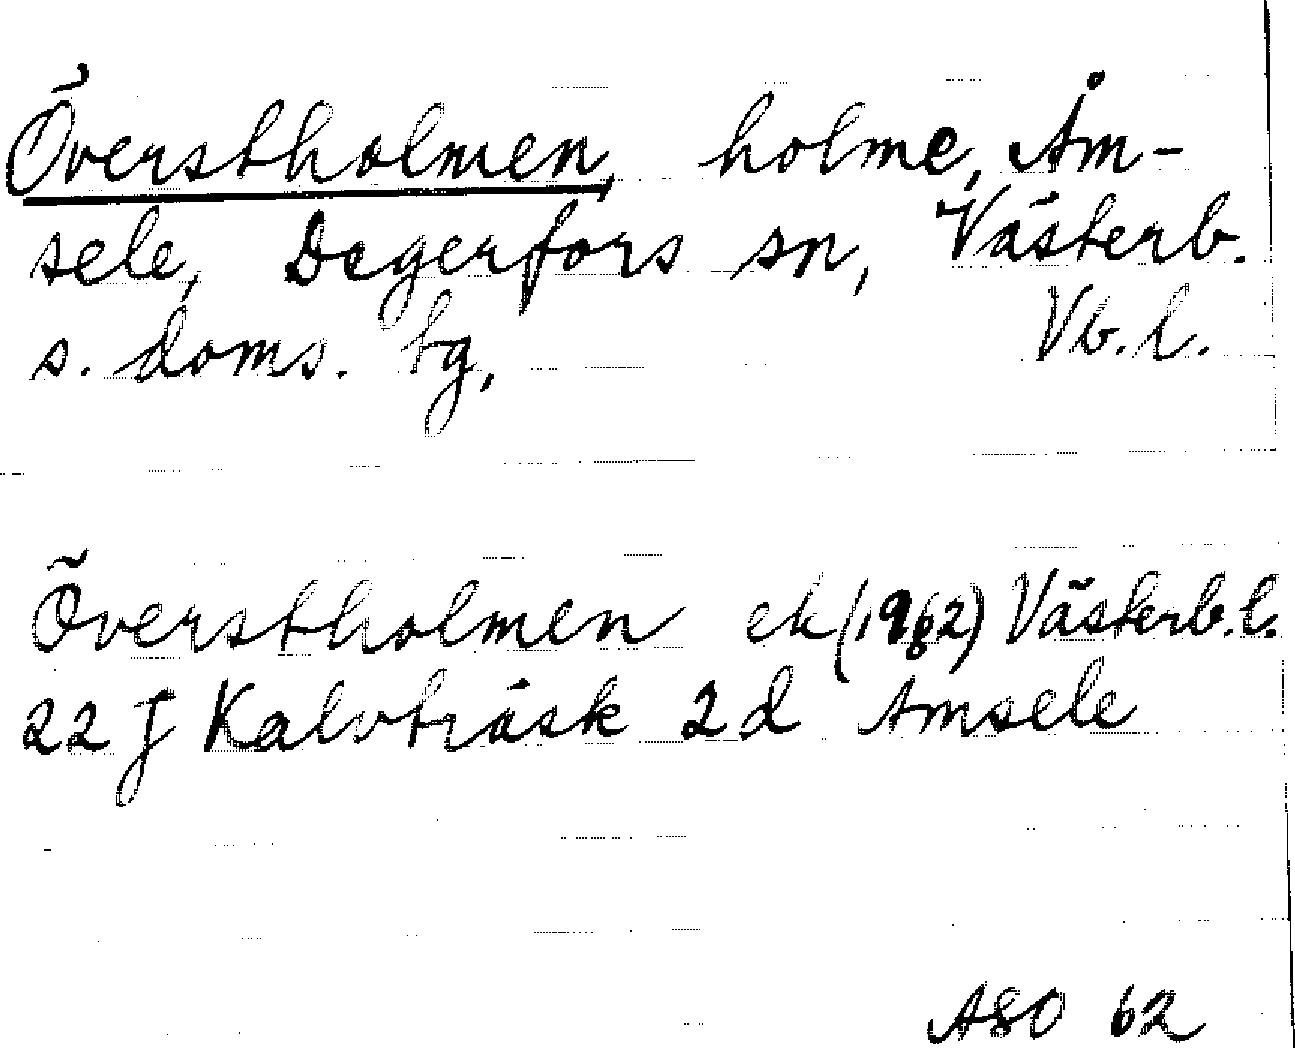 Överstholmen, holme, Åm-
sele, Degerfors sn, Västerb.
s. doms. tg, Vb. l.
Överstholmen ek (1962) Västerb. l.
22 J Kalvträsk 2 d Åmsele
ASO 62